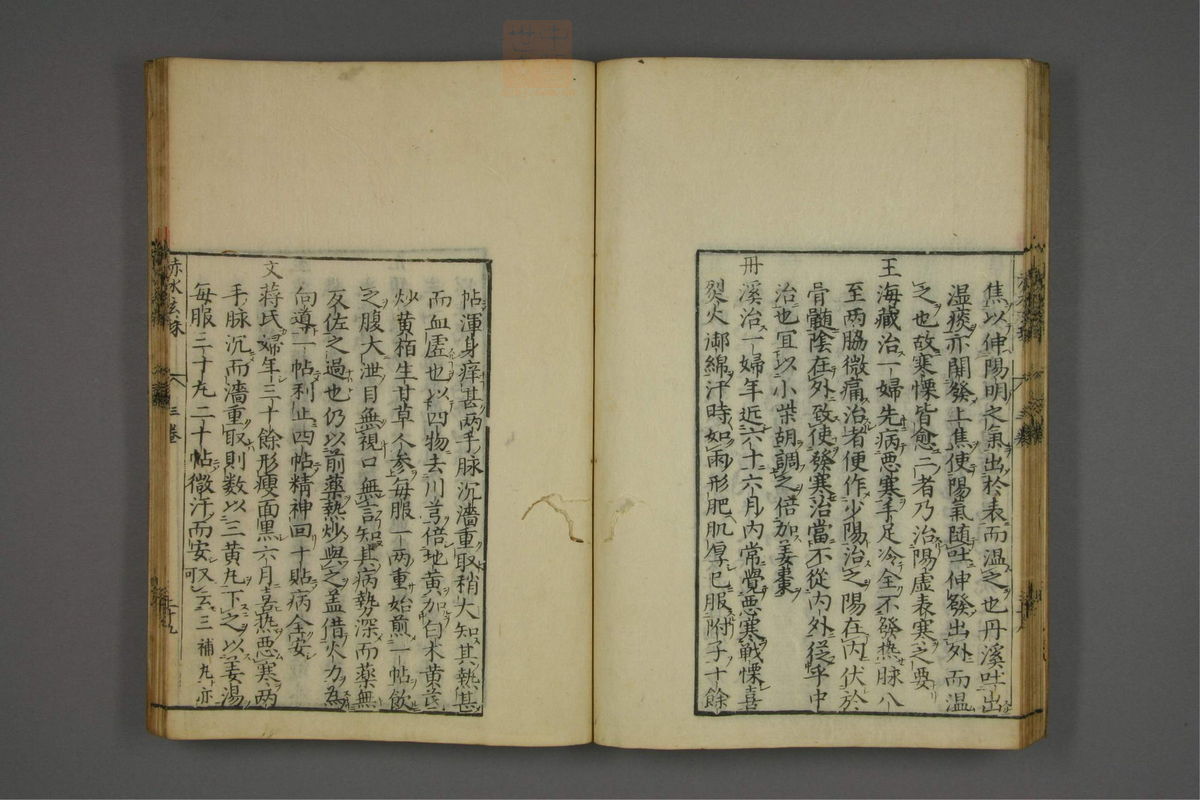 焦以伸陽明之氣出於表而溫之也丹溪吐出
濕痰亦開發上焦使陽氣随吐伸發出外而溫
之也故寒慄皆愈二者乃治陽虚表寒之要
王海藏治一婦先病悪寒手足冷全不發热脉八
至两脇微痛治者便作少陽治之陽在内伏於
骨髓陰在外致使發寒治當不從内外従乎中
治也冝以小柴胡調之倍加姜棗
丹溪治一婦年近六十六月内常覺悪寒戦慄喜
炎火御綿汗時如雨形肥肌厚已服附子十餘
帖渾身痒甚两手脉沉濇重取稍大知其熱甚
而血虚也以四物去川芎倍地黄加白术黄芪
炒黄栢生甘草人参毎服一两重始煎一帖飲
之腹大泄目無視口無言知其病勢深而藥無
反佐之過也仍以前藥熱炒與之盖借火力為
向導一帖利止四帖精神回十貼病全安
文蒋氏婦年三十餘形瘦面黒六月喜热悪寒两
手脉沉而濇重取則数以三黄丸下之以姜湯
毎服三十丸二十帖微汗而安又云三補丸亦可
赤水玄珠
三巻
二十九